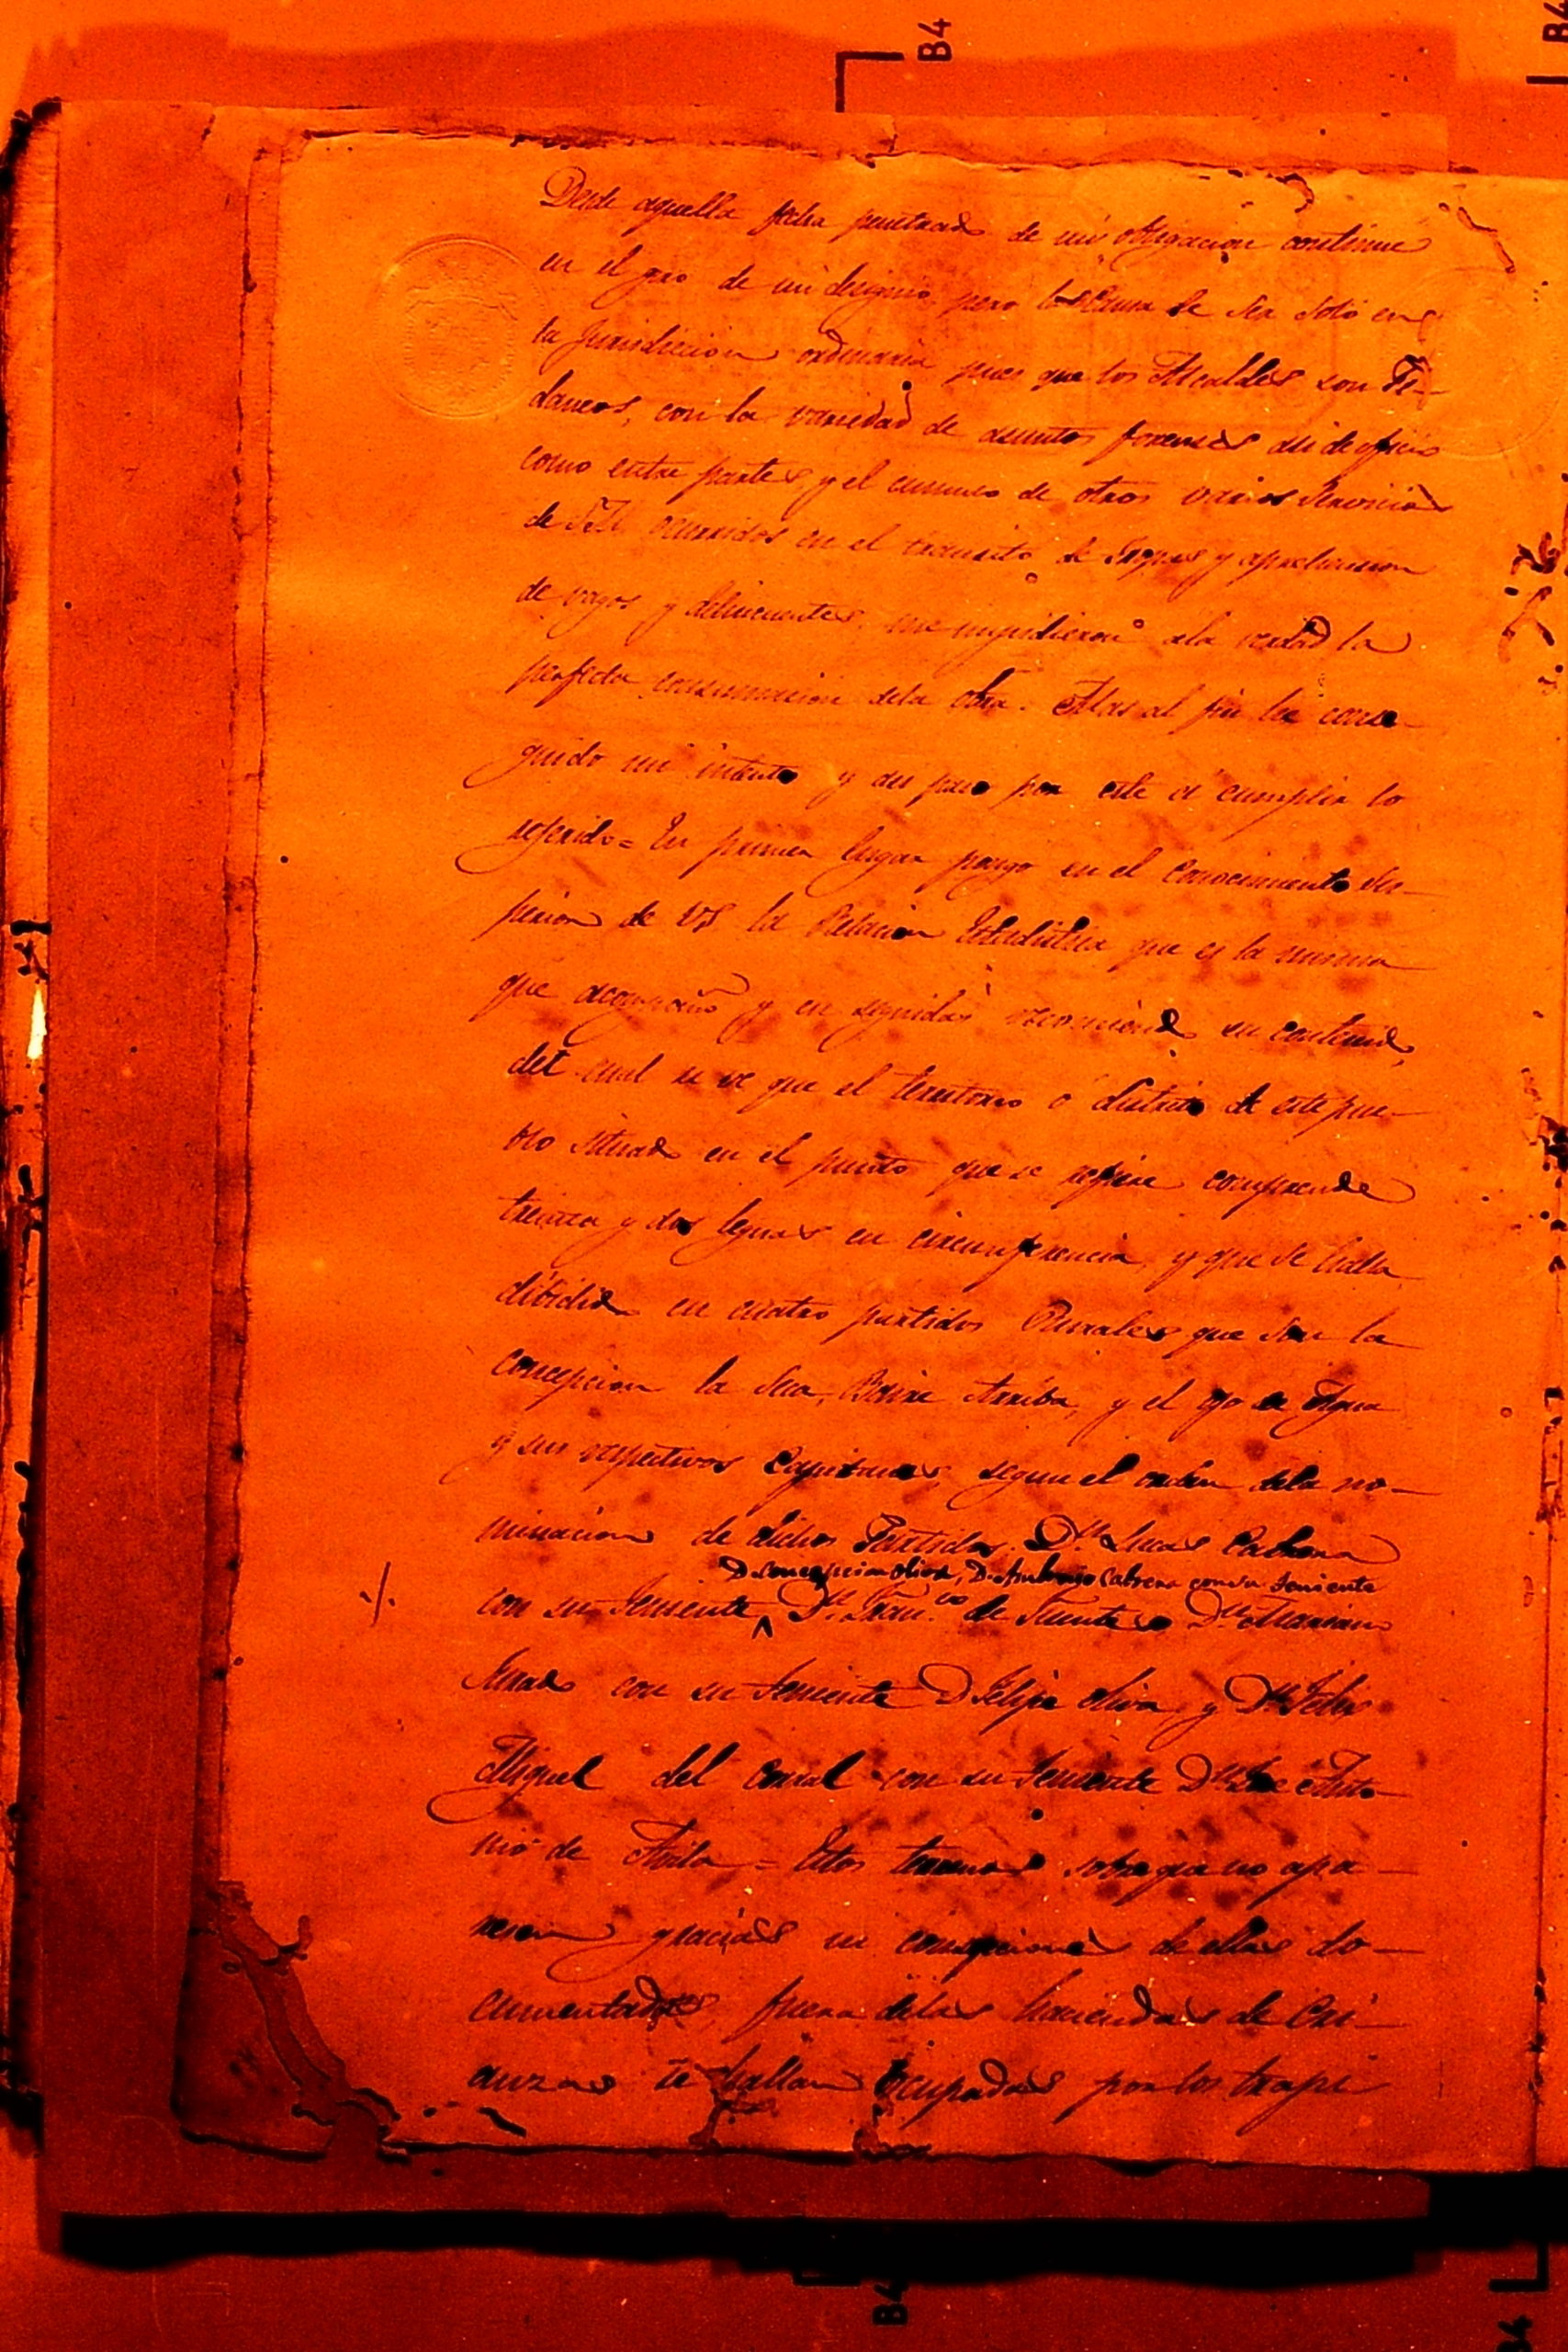 B4
Desde aquella fecha penetrado de mi obligacion continué
en el giro de mi designio pero la causa de ser solo en
la jurisdiccion ordinaria pues que los Alcaldes son Pe-
daneos, con la variedad de asuntos forenses asi de oficio
como entre partes y el cumulo de otros varios servicios
de ocurridos en el transito de tropas y aprehencion
de vagos y delincuentes, me impidieron ala verdad la
perfecta consumacion dela obra. Mas al fin he conse-
guido mi intento y asi paso por este á cumplir lo
referido = En primer lugar pongo en el conocimiento su-
perior de VS la Relacion Estadistica que es la misma
que acompaño y en seguida su contenido,
del cual se ve que el territorio ó distrito de este pue-
blo situado en el punto que se refiere comprende
treinta y dos leguas en circunferencia, y que se halla
dibidido en cuatro partidos Rurales que son la
Concepcion la Seca, Arriba, y el ojo de Agua
y sus respectivos Capitanes, segun el orden dela no-
minacion de dichos Partidos. Dn Lucas Cabrera
D. Concepcion oliva, D. Ambrocio Cabrera con su teniente
con su Teniente, Dn Fran.co de Fuentes Dn Mariano
con su teniente D Felipe oliva, y Dn
Miguel del Corral con su teniente Dn José Anto-
nio de Avila = Estos terrenos sobre que no apa-
resen gracias ni concepciones de ellas do-
cumentadas, fuera delas haciendas de Cri-
anzas se hallan ocupadas por los trapi
B4